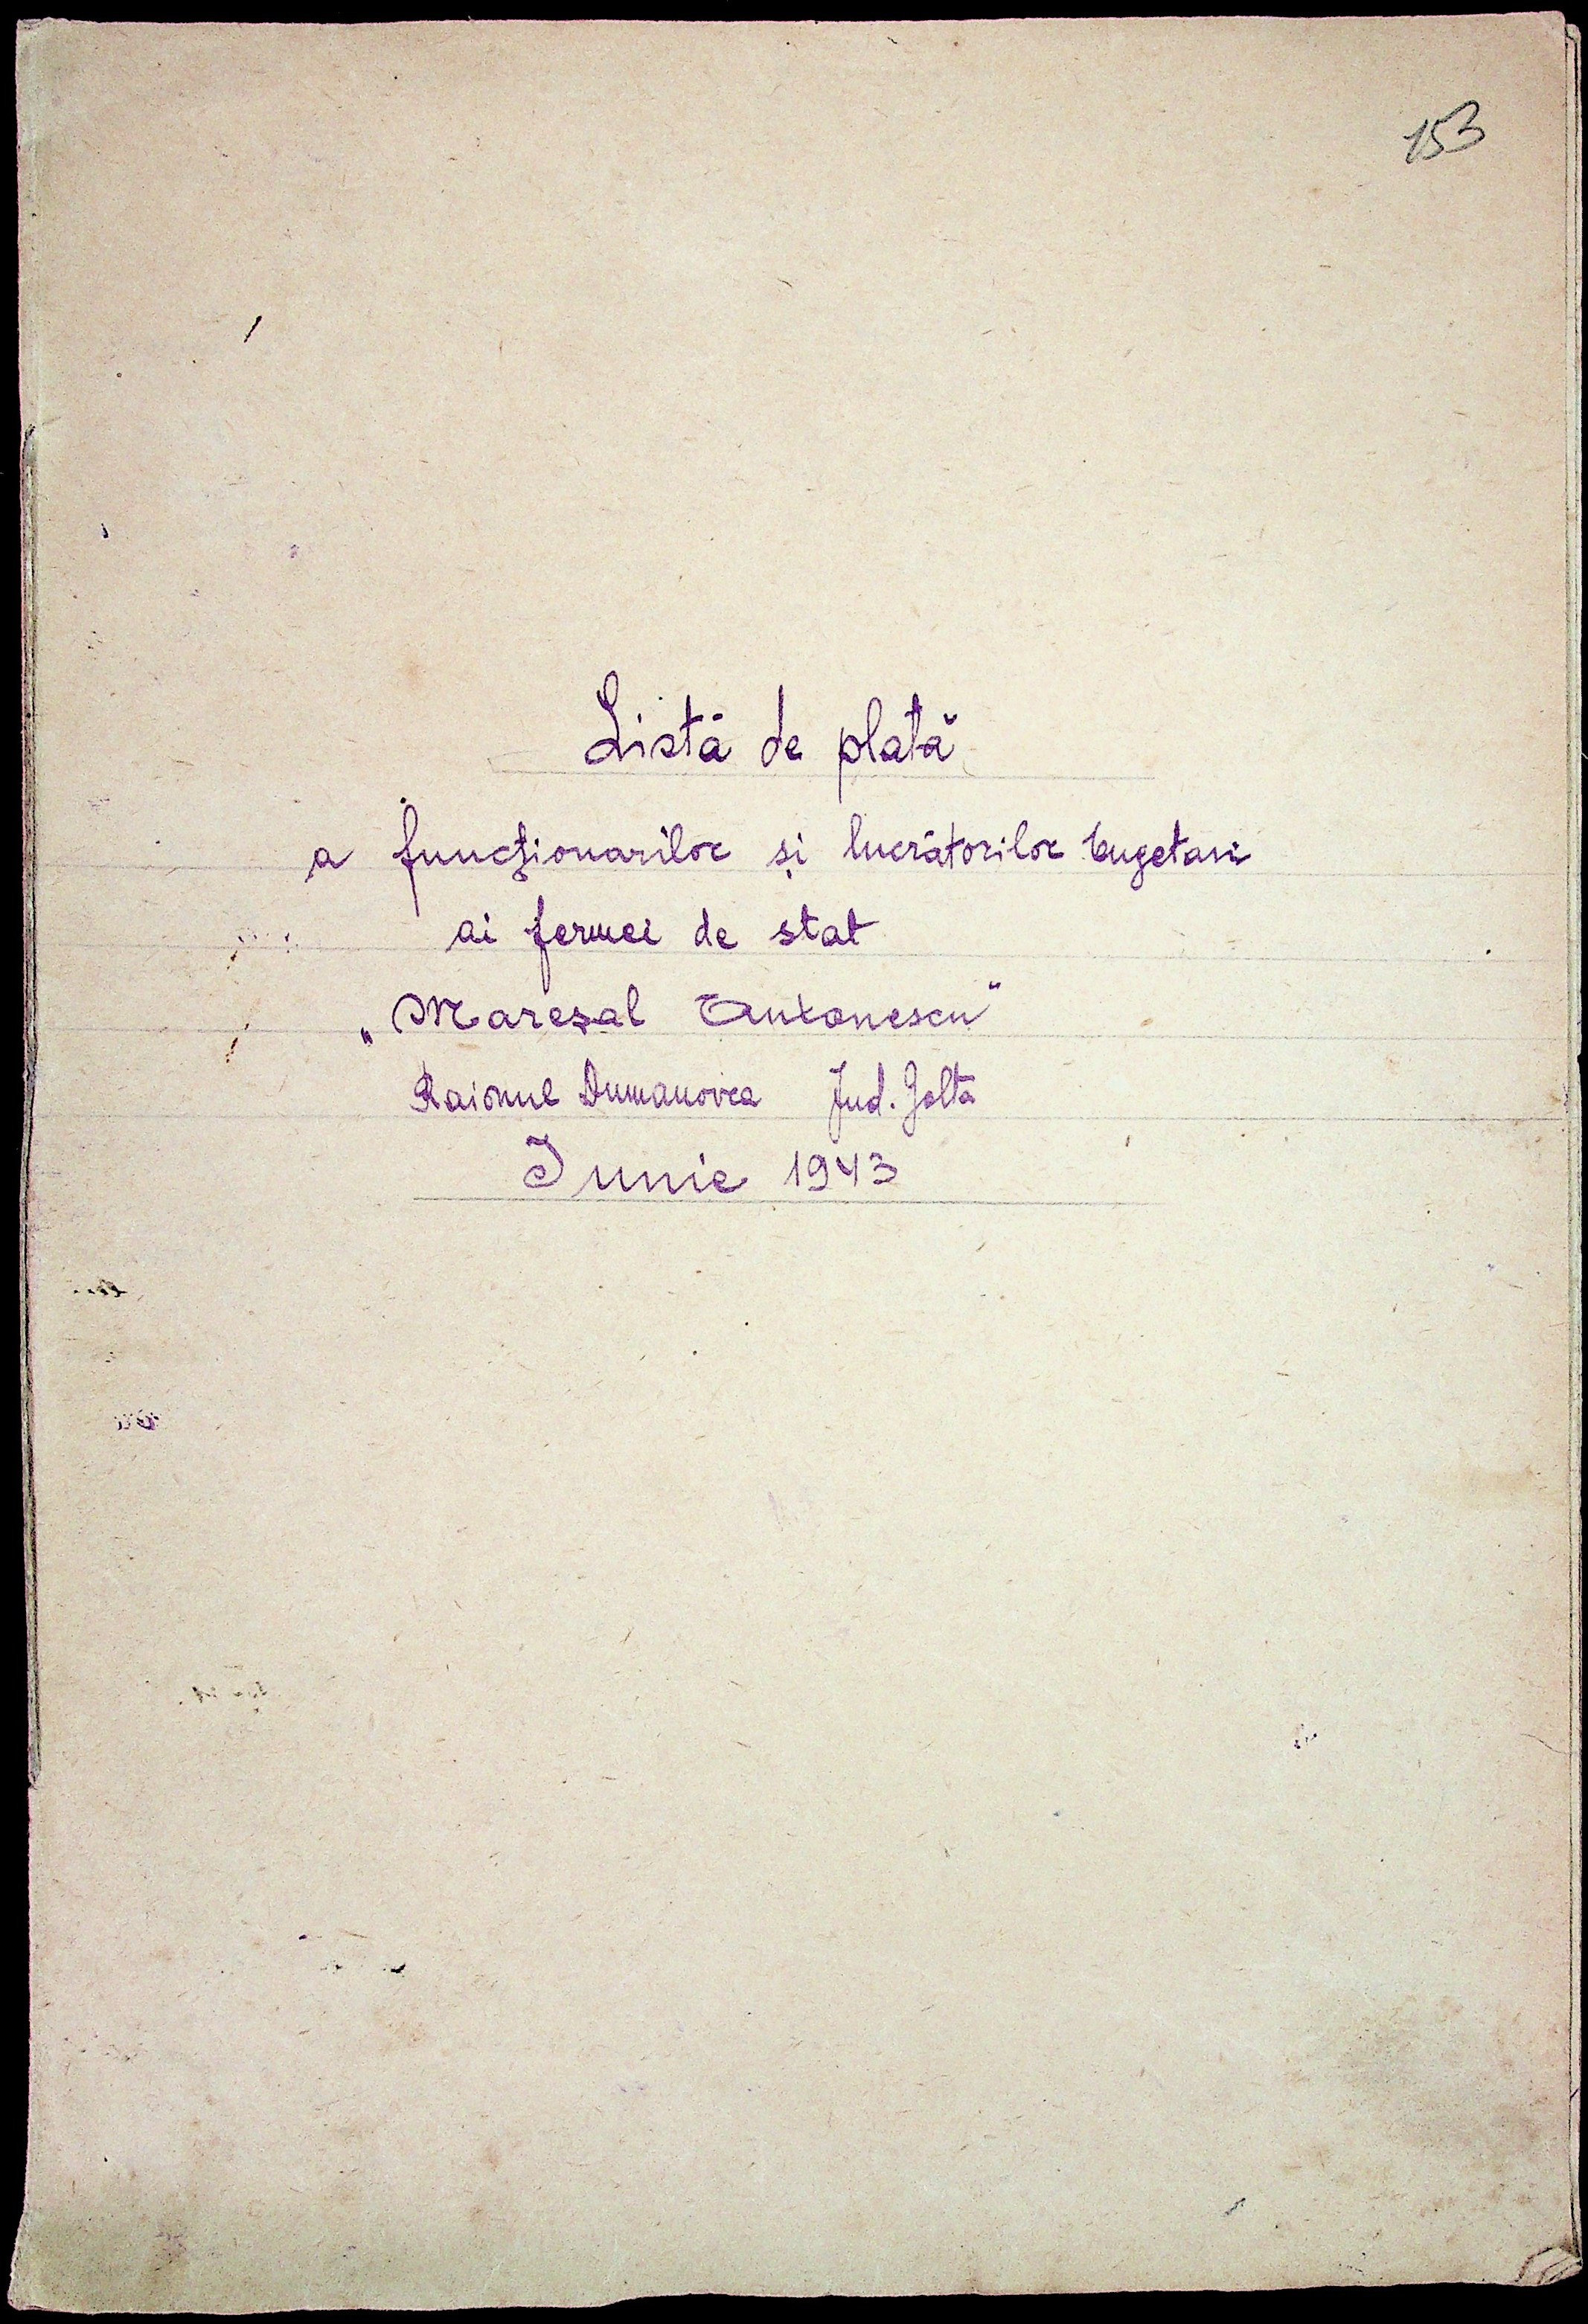 153
Listă de plată
a funcționarilor și lucrătorilor bugetari
ai fermei de stat
„Mareșal Antonescu"
Raionul Dumanovca Jud. Golta
Iunie 1943